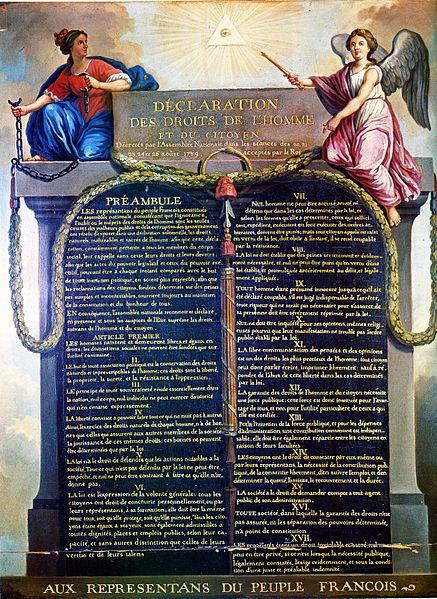 DÉCLARATION
DES DROITS DE L'HOMME
ET DU CITOYEN,
Décrétés par l'Assemblée Nationale dans les séances des 20, 21
23, 24 et 26 août 1789, acceptés par le Roi
PRÉAMBULE
LES représentans du peuple François, constitués
en assemblée nationale, considérant que l'ignorance,
l'oubli ou le mépris des droits de l'homme sont les seules
causes des malheurs publics et de la corruption des gouvernemens
ont résolu d'exposer dans une déclaration solemnelle, les droits
naturels, inaliénables et sacrés de l'homme, afin que cette déclaration,
constamment présente à tous les membres du corps
social, leur rappelle sans cesse leurs droits et leurs devoirs,
afin que les actes du pouvoir législatif et ceux du pouvoir exécutif,
pouvant être à chaque instant comparés avec le but
de toute institution politique, en soient plus respectés, afin que
les réclamations des citoyens, fondées désormais sur des principes
simples et incontestables, tournent toujours au maintien
de la constitution et du bonheur de tous.
EN conséquence, l'assemblée nationale reconnoit et déclare,
en présence et sous les auspices de l'Être suprême les droits
suivans de l'homme et du citoyen.
ARTICLE PREMIER.
LES hommes naissent et demeurent libres et égaux en
droits, les distinctions sociales ne peuvent être fondées que sur
l'utilité commune.
II.
LE but de toute association politique est la conservation des droits
naturels et imprescriptibles de l'homme; ces droits sont la liberté,
la propriété, la sureté, et la résistance à l'oppression.
III.
LE principe de toute souveraineté réside essentiellement dans
la nation, nul corps, nul individu ne peut exercer d'autorité
qui n'en émane expressément.
IV.
LA liberté consiste à pouvoir faire tout ce qui ne nuit pas à autrui
Ainsi, l'exercice des droits naturels de chaque homme, n'a de bornes
que celles qui assurent aux autres membres de la société
la jouissance de ces mêmes droits; ces bornes ne peuvent
être déterminées que par la loi.
V.
LA loi n'a le droit de défendre que les actions nuisibles à la
société. Tout ce qui n'est pas défendu par la loi ne peut être
empêché, et nul ne peut être contraint à faire ce qu'elle n'ordonne
pas.
VI.
LA loi est l'expression de la volonté générale; tous les
citoyens ont droit de concourir personnellement, ou par
leurs représentans, à sa formation; elle doit être la même
pour tous, soit qu'elle protege, soit qu'elle punisse. Tous les citoyens
étant égaux à ses yeux, sont également admissibles à
toutes dignités, places et emplois publics, selon leur capacité,
et sans autres distinction que celles de leurs
vertus et de leurs talens
VII.
NUL homme ne peut être accusé, arrêté, ni
détenu que dans les cas déterminés par la loi, et
selon les formes qu'elle a prescrites, ceux qui sollicitent,
expédient, exécutent ou font exécuter des ordres arbitraires,
doivent être punis; mais tout citoyen appelé ou saisi
en vertu de la loi, doit obéir à l'instant, il se rend coupable
par la résistance.
VIII.
LA loi ne doit établir que des peines strictement et évidemment
nécessaires, et nul ne peut être puni qu'en vertu d'une
loi établie et promulguée antérieurement au délit, et légalement
appliquée.
IX.
TOUT homme étant présumé innocent jusqu'à ce qu'il ait
été déclaré coupable, s'il est jugé indispensable de l'arrêter,
toute rigueur qui ne serait pas nécessaire pour s'assurer de
sa personne doit être sévèrement réprimée par la loi.
X.
NUL ne doit être inquiété pour ses opinions, mêmes religieuses
pourvu que leur manifestation ne trouble pas l'ordre
public établi par la loi.
XI.
LA libre communication des pensées et des opinions
est un des droits les plus précieux de l'homme; tout citoyen
peut donc parler, écrire, imprimer librement: sauf à répondre
de l'abus de cette liberté dans les cas déterminés
par la loi.
XII.
LA garantie des droits de l'homme et du citoyen nécessite
une force publique: cette force est donc instituée pour l'avantage
de tous, et non pour l'utilité particulière de ceux à qui
elle est confiée.
XIII.
Pour l'entretien de la force publique, et pour les dépenses
d'administration, une contribution commune est indispensable;
elle doit être également répartie entre les citoyens en
raison de leurs facultés.
XIV.
LES citoyens ont le droit de constater par eux même ou
par leurs représentans, la nécessité de la contribution publique,
de la consentir librement, d'en suivre l'emploi, et d'en
déterminer la quotité, l'assiette, le recouvrement et la durée.
XV.
LA société a le droit de demander compte à tout agent
public de son administration.
XVI.
TOUTE société, dans laquelle la garantie des droits n'est
pas assurée, ni la séparation des pouvoirs déterminée,
n'a point de constitution.
XVII.
LES propriétés étant un droit inviolable et sacré, nul ne
peut en être privé, si ce n'est lorsque la nécessité publique,
légalement constatée, l'exige évidemment, et sous la condition
d'une juste et préalable indemnité.
AUX REPRESENTANS DU PEUPLE FRANCOIS